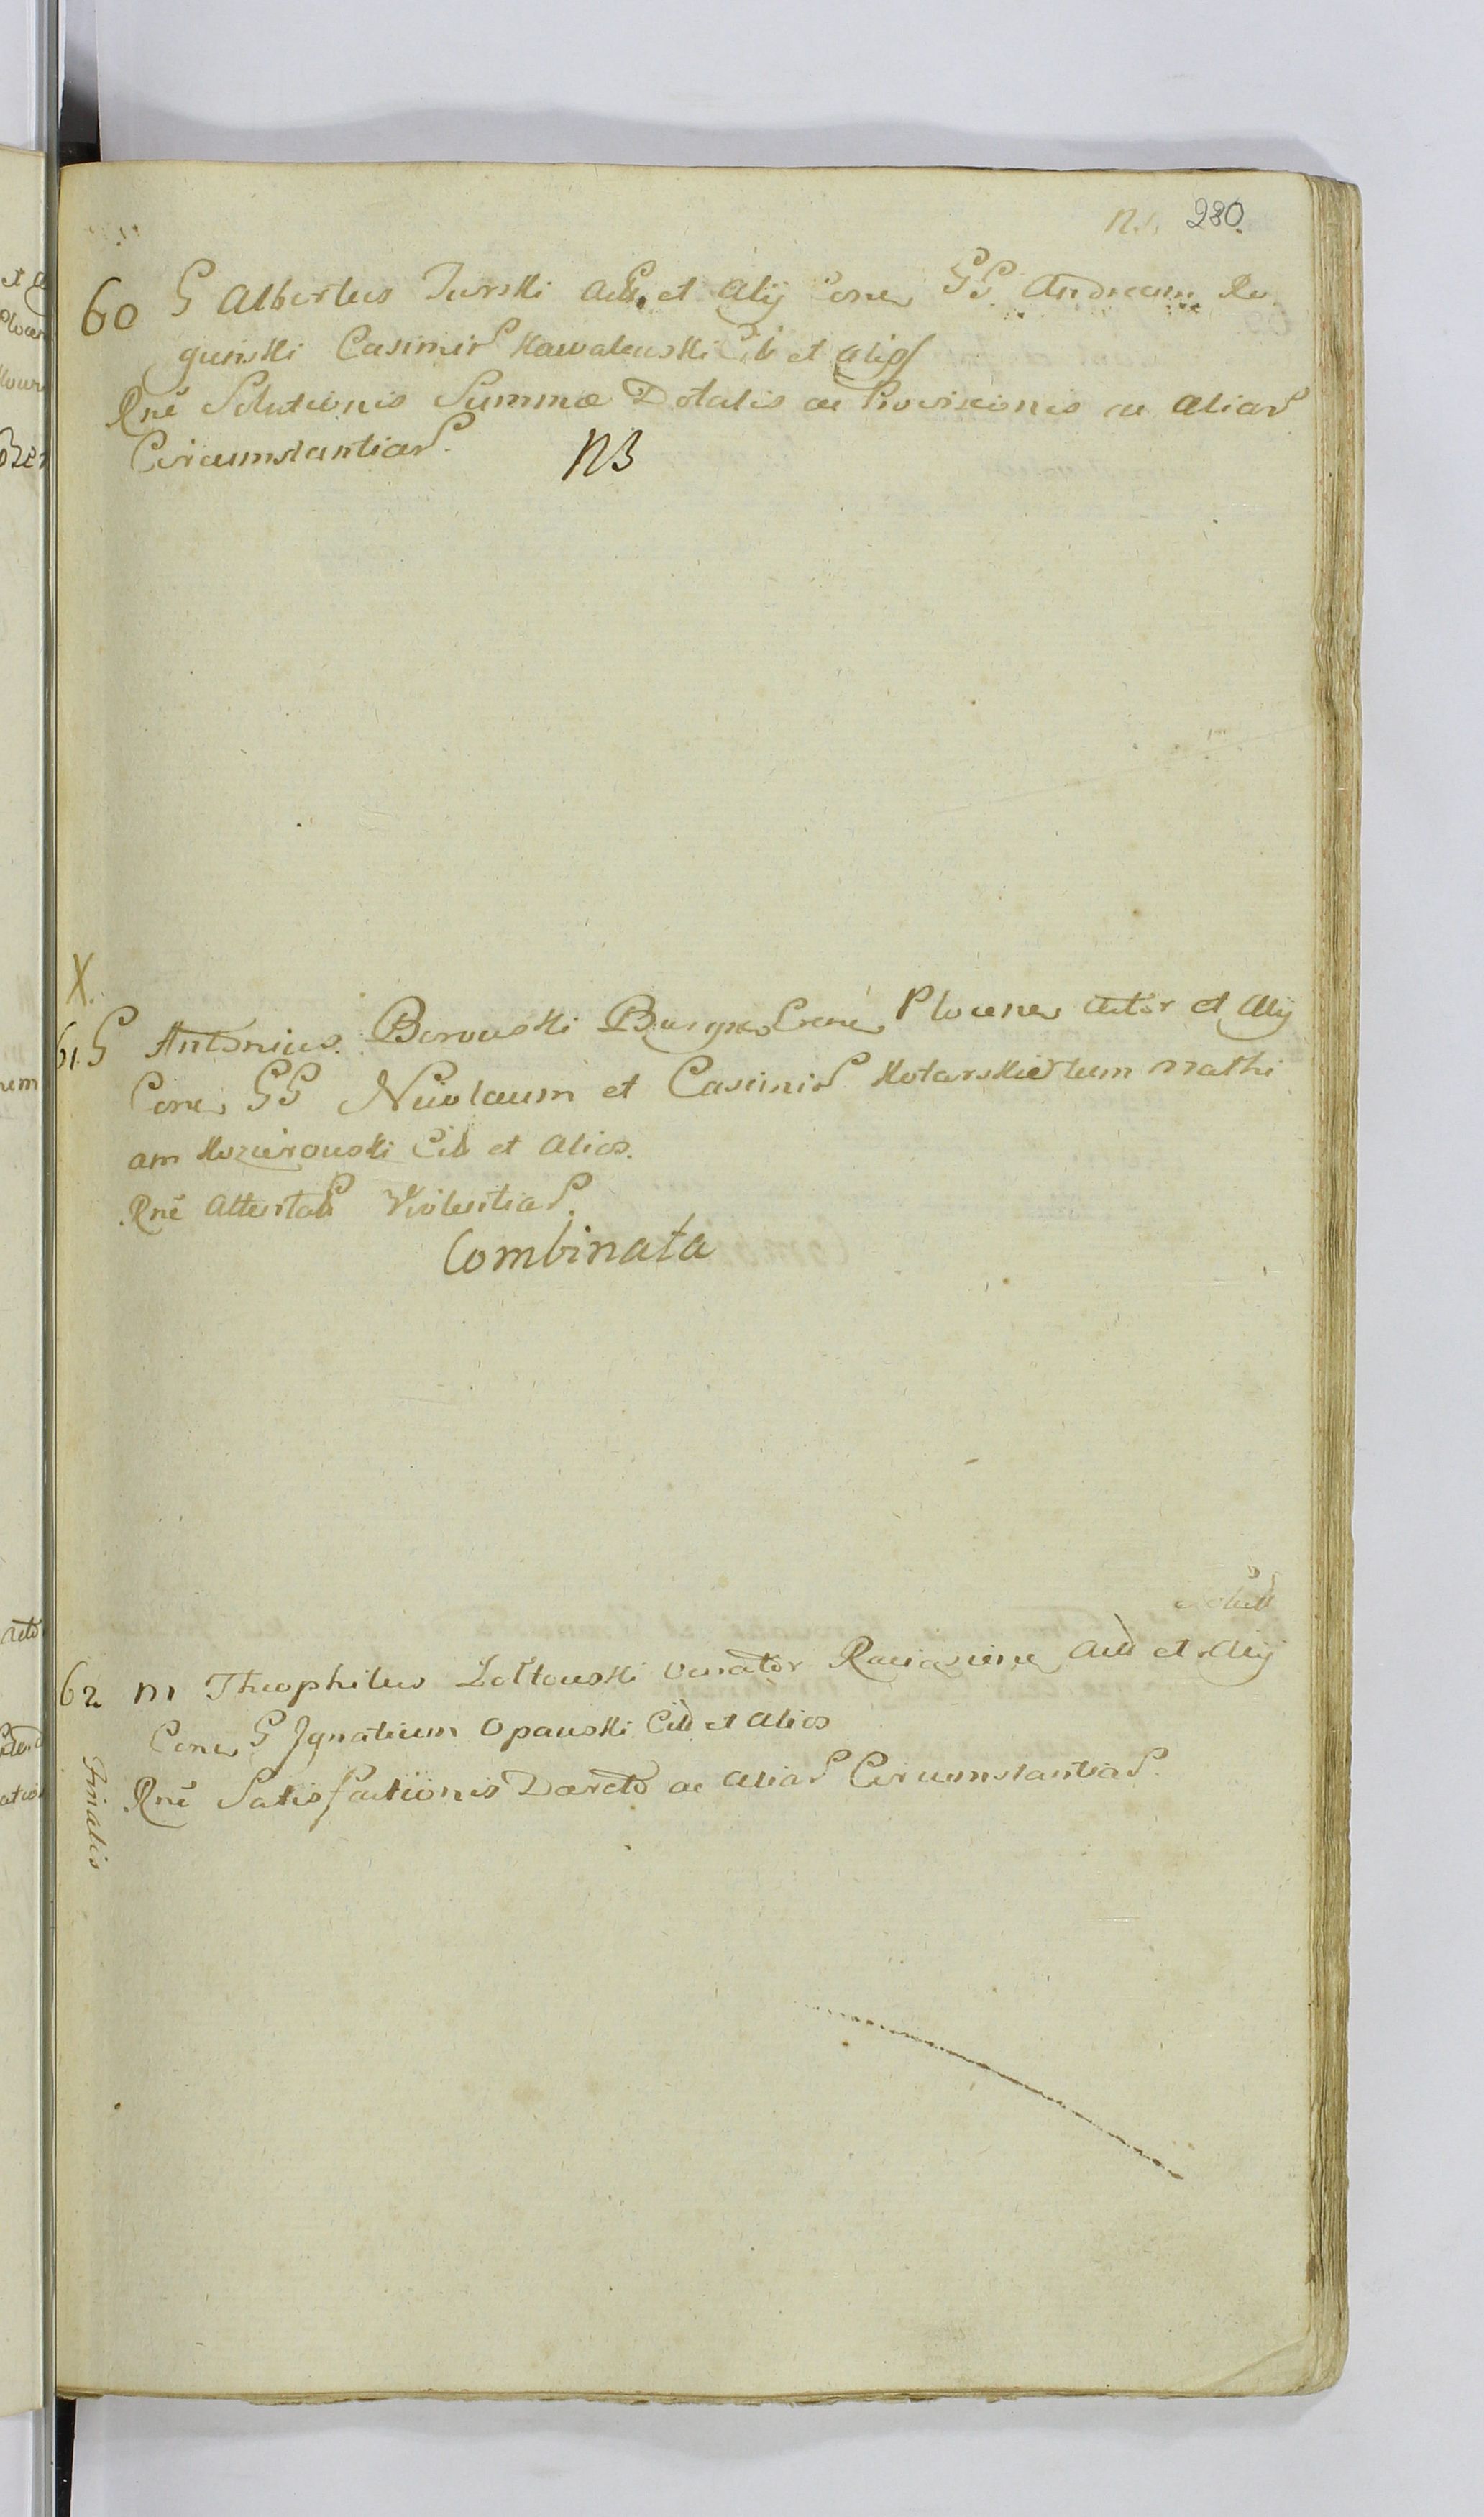 280.
60 G Albertus Turski Act. et Alij Conë GG Andream Ro
guinski Casimir Kawalewski Cit et alios
Rnë Solutionis Summæ Dotalis ac Provisionis ac aliar
Circumstantiar. NB
X.
61. G Antonius Borowski Burgr Crenë Plocenë Actor et Alij
Conë GG Nicolaum et Casimir Kotarskie tum Mathi
am Kozierowski Cit et Alios.
Rnë Attentat Violentiar.
Combinata
62 M Theophilus Zottowski Venator Raciaziene Act et Alij
Conë G Ignatium Opawski Cit et Alios
Rnë Satisfactionis Decreto ac Aliar Circumstantiar.
Finalis